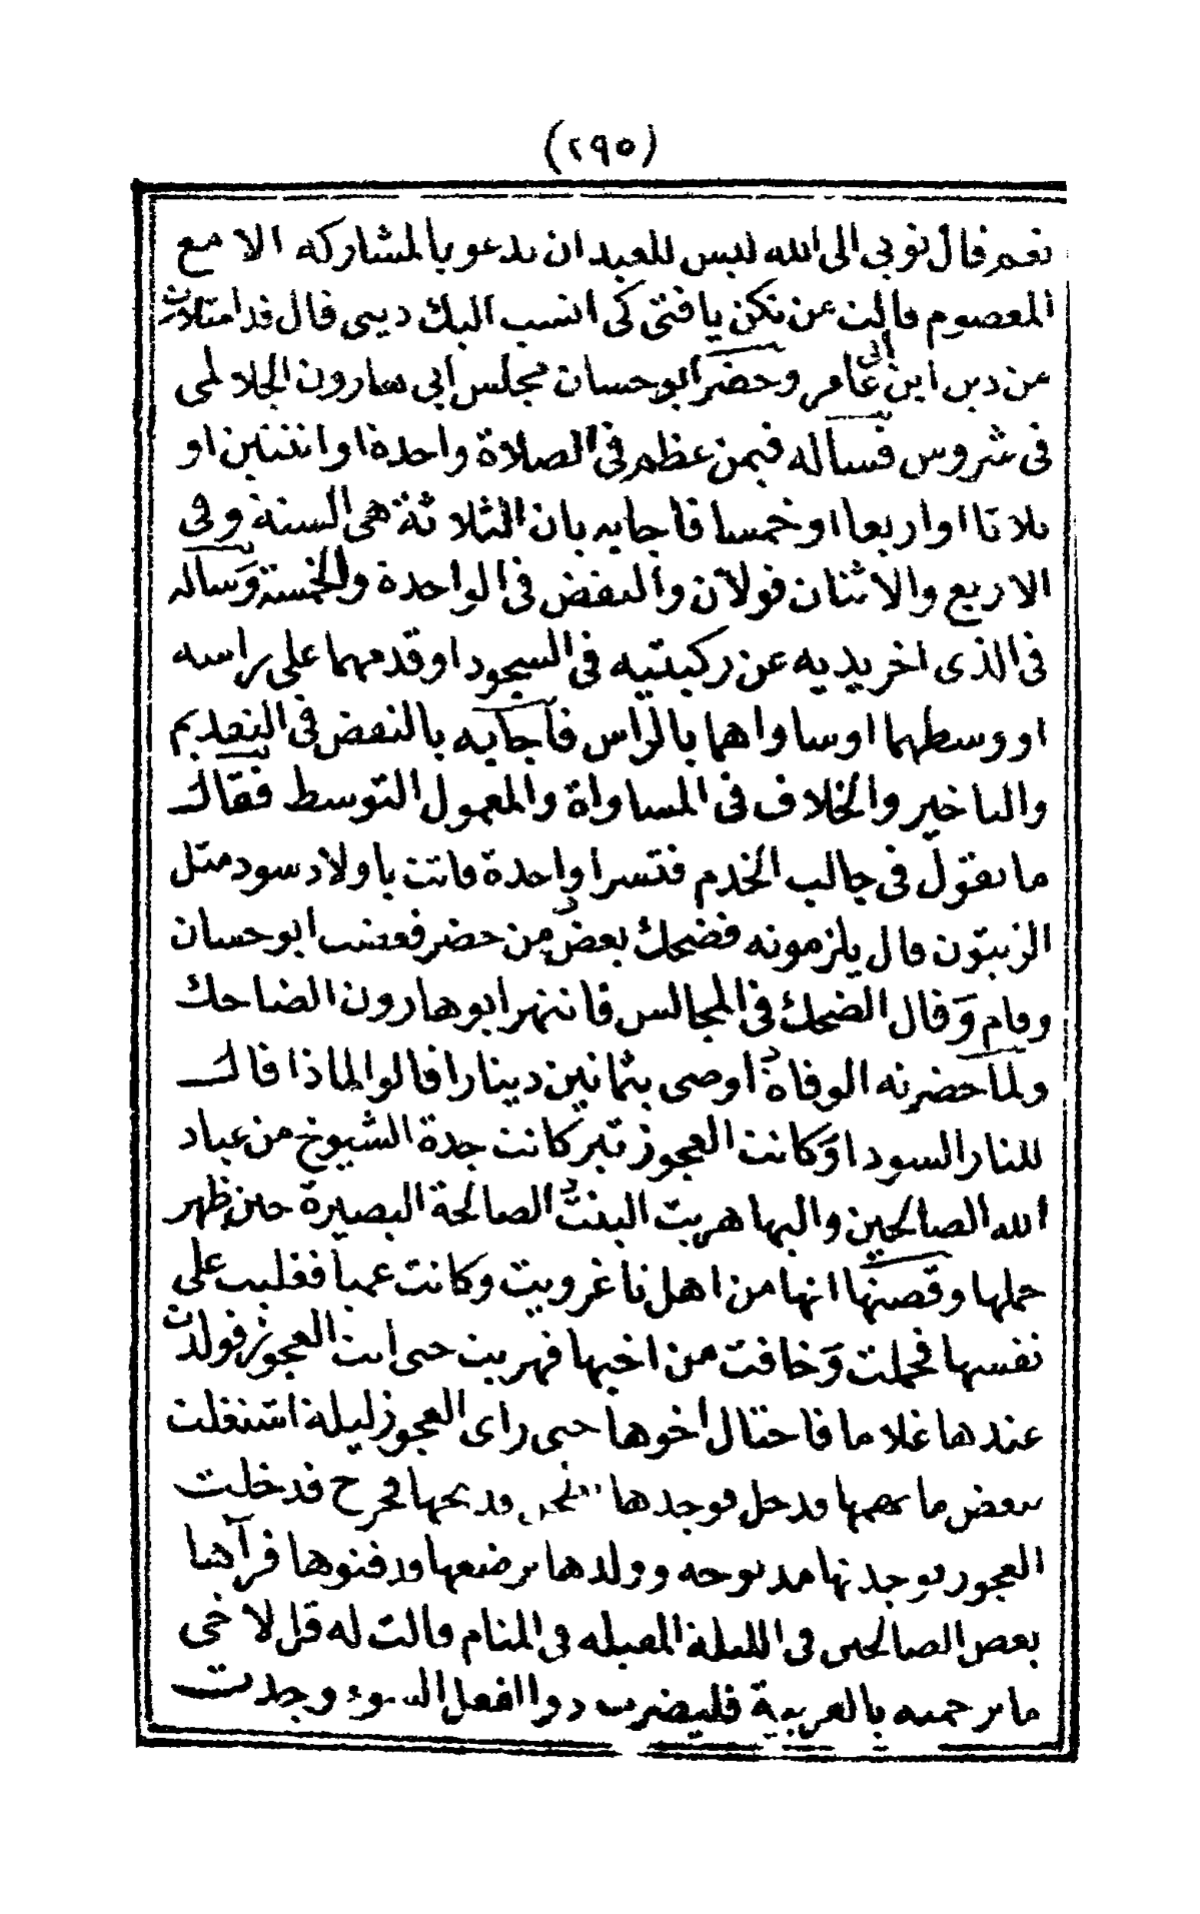 (٢٩٥)
نعم قال توبي الى الله ليس للعبد ان يدعو بالمشاركه الا مع
المعصوم قالت عن تكن يا فتى كى انسب اليك دينى قال قد امتلات
من دين ابن ابى عامر وحضر ابو حسان مجلس ابى هارون الجلالمى
فى شروس فساله فيمن عظم فى الصلاة واحدة او اثنتين او
ثلاثا او اربعا او خمسا فاجابه بان الثلاثة هى السنة وفى
الاربع والاثنان قولان والنقض فى الواحدة والخمسة وساله
فى الذى اخر يديه عن ركبتيه فى السجود او قدمهما على راسه
او وسطهما او ساواهما بالراس فاجابه بالنقض فى التقديم
والتاخير والخلاف فى المساواة والمعمول التوسط فقال
ما تقول فى جالب الخدم فتسرا واحدة فاتت باولاد سود مثل
الزيتون قال يلزمونه فضحك بعض من حضر فغضب ابو حسان
وقام وقال الضحك فى المجالس فانتهر ابو هارون الضاحك
ولما حضرته الوفاة اوصى بثمانين دينارا قالوا لماذا قال
للنار السودا وكانت العجوز تبركانت جدة الشيوخ من عباد
الله الصالحين واليها هربت البنت الصالحة البصيرة حين ظهر
حملها وقصتها انها من اهل تاغرويت وكانت عميا فغلبت على
نفسها فحملت وخافت من اخيها فهربت حتى اتت العجوز فولدت
عندها غلاما فاحتال اخوها حتى راى العجوز ليلة اشتغلت
ببعض ما يهمها ودخل فوجدها وذبحها فخرج فدخلت
العجوز فوجدتها مذبوحه وولدها يرضعها ودفنوها فرآها
بعض الصالحين فى الليلة المقبله فى المنام قالت له قل لاخى
ما ترجمته بالعربية فليضرب ذوا الفعل السوء وجدت